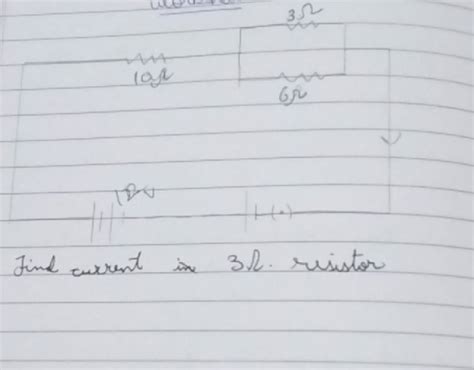 3Ω
10Ω
6Ω
(.)
Find current in 3Ω. resistor